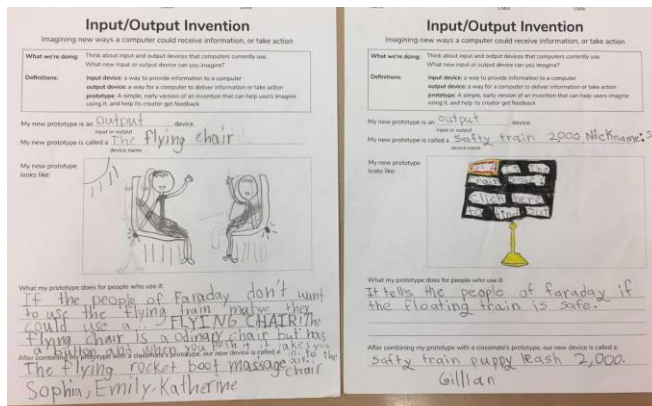 Input/Output Invention
Imagining new ways a computer could receive information, or take action
What we're doing: Think about input and output devices that computers currently use.
What new input or output device can you imagine?
Definitions: input device: a way to provide information to a computer
output device: a way for a computer to deliver information or take action
prototype: A simple, early version of an invention that can help users imagine
using it, and help its creator get feedback
My new prototype is an output device.
input or output
My new prototype is called a The flying chair
device name
My new prototype
looks like:
What my prototype does for people who use it:
If the people of Faraday don't want
to use the flying train maybe they
could use a... FLYING CHAIR! The
flying chair is a odinary chair but has
a button abd when you push it it takes you
in to the
air.
After combining my prototype with a classmate's prototype, our new device is called a
The flying rocket boot massage chair
Sophia, Emily, Katherine
Input/Output Invention
Imagining new ways a computer could receive information, or take action
What we're doing: Think about input and output devices that computers currently use.
What new input or output device can you imagine?
Definitions: input device: a way to provide information to a computer
output device: a way for a computer to deliver information or take action
prototype: A simple, early version of an invention that can help users imagine
using it, and help its creator get feedback
My new prototype is an output device.
input or output
My new prototype is called a Safty train 2,000 Nickname: S
device name
My new prototype
looks like:
is the
train
click herd
to find out
What my prototype does for people who use it:
It tells the people of faraday if
the floating train is safe.
After combining my prototype with a classmate's prototype, our new device is called a
Safty train puppy leash 2,000.
Gillian